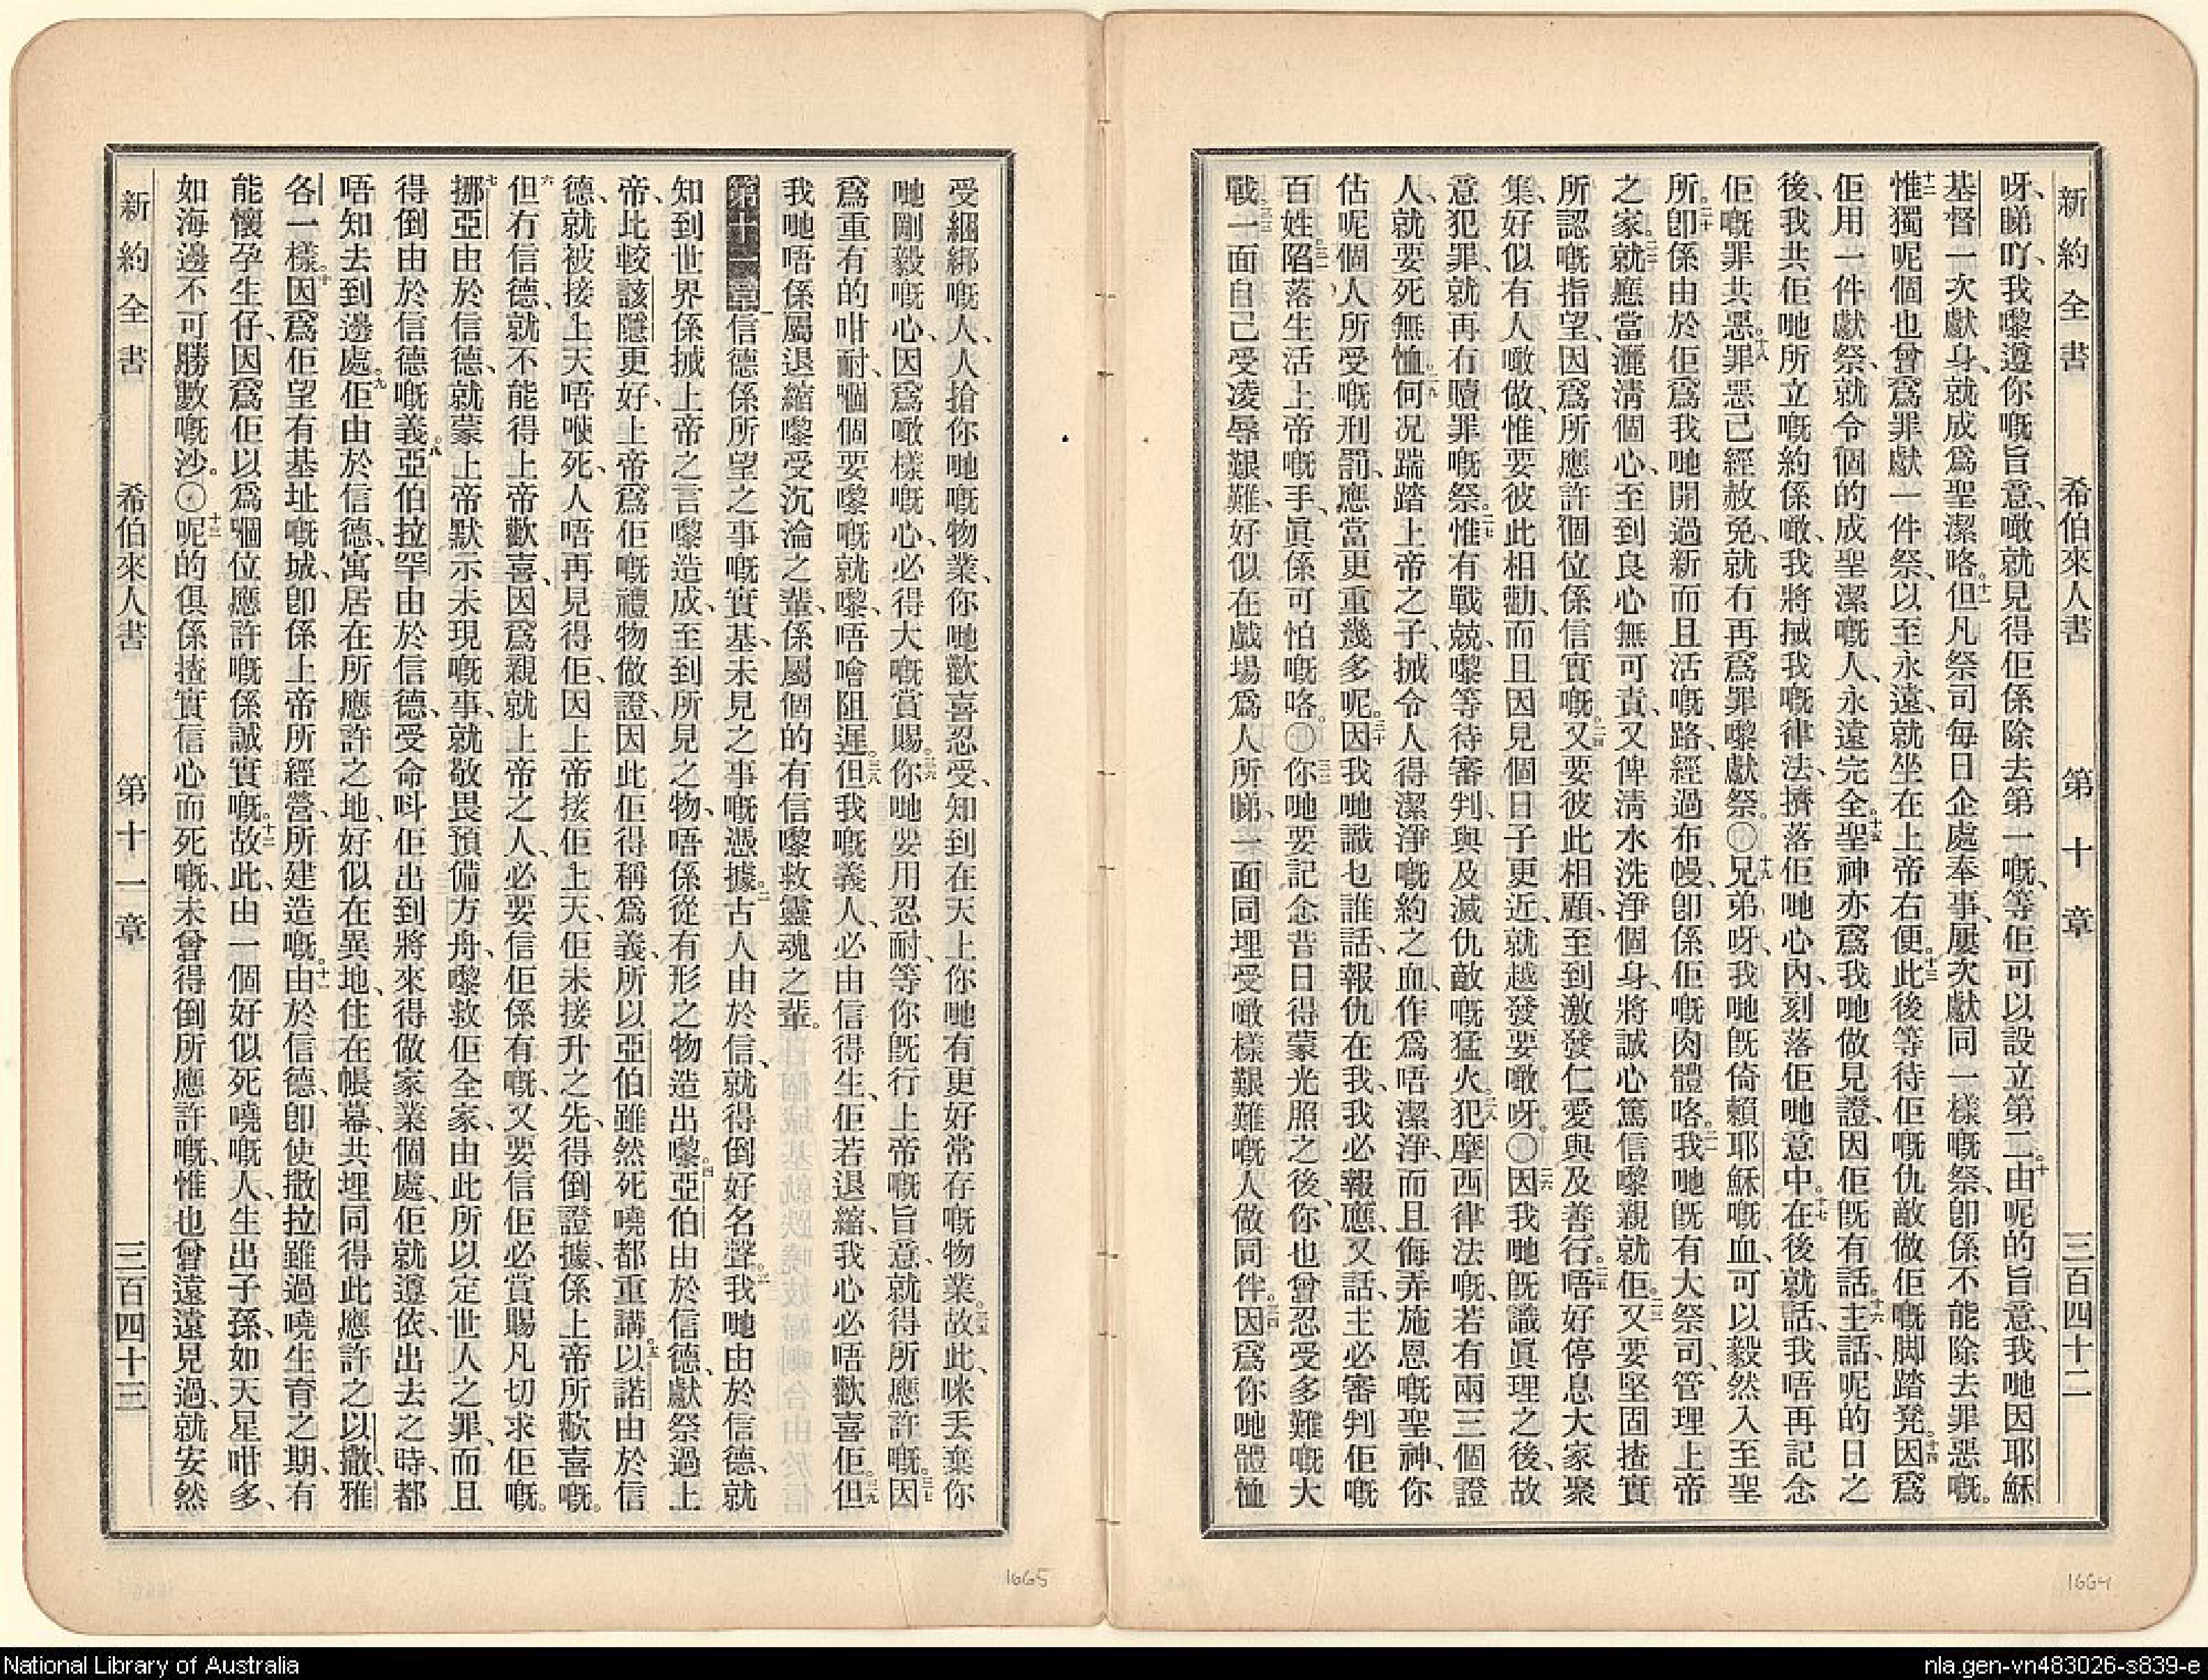 新約全書 希伯來人書 第十章 三百四十二
呀、睇吖、我嚟遵你嘅旨意、噉就見得佢係除去第一嘅、等佢可以設立第二。十由呢的旨意、我哋因耶穌
基督一次獻身、就成爲聖潔咯。十一但凡祭司每日企處奉事、屢次獻同一樣嘅祭、卽係不能除去罪惡嘅。
十二惟獨呢個也曾爲罪獻一件祭、以至永遠、就坐在上帝右便。十三此後等待佢嘅仇敵做佢嘅脚踏凳。十四因爲
佢用一件獻祭、就令個的成聖潔嘅人、永遠完全。十五聖神亦爲我哋做見證、因佢旣有話。十六主話、呢的日之
後、我共佢哋所立嘅約係噉、我將摵我嘅律法、擠落佢哋心內、刻落佢哋意中。十七在後就話、我唔再記念
佢嘅罪共惡。十八罪惡已經赦免、就冇再爲罪嚟獻祭。十九兄弟呀、我哋旣倚賴耶穌嘅血、可以毅然入至聖
所。二十卽係由於佢爲我哋開過新而且活嘅路、經過布幔、卽係佢嘅肉體咯。二一我哋旣有大祭司、管理上帝
之家。二二就應當灑淸個心、至到良心無可責、又俾淸水洗淨個身、將誠心篤信嚟親就佢。二三又要堅固揸實
所認嘅指望、因爲所應許個位係信實嘅。二四又要彼此相顧、至到激發仁愛與及善行。二五唔好停息大家聚
集、好似有人噉做、惟要彼此相勸、而且因見個日子更近、就越發要噉呀。二六因我哋旣識眞理之後、故
意犯罪、就再冇贖罪嘅祭。二七惟有戰兢嚟等待審判、與及滅仇敵嘅猛火。二八犯摩西律法嘅、若有兩三個證
人、就要死無恤。二九何况踹踏上帝之子、摵令人得潔淨嘅約之血、作爲唔潔淨、而且侮弄施恩嘅聖神、你
估呢個人所受嘅刑罰、應當更重幾多呢。三十因我哋識乜誰話、報仇在我、我必報應、又話、主必審判佢嘅
百姓。三一陷落生活上帝嘅手、眞係可怕嘅咯。三二你哋要記念昔日得蒙光照之後、你也曾忍受多難嘅大
戰。三三一面自己受凌辱艱難、好似在戲場爲人所睇、一面同埋受噉樣艱難嘅人做同伴。三四因爲你哋體恤
受綑綁嘅人、人搶你哋嘅物業、你哋歡喜忍受、知到在天上你哋有更好常存嘅物業。三五故此、咪丢棄你
哋剛毅嘅心、因爲噉樣嘅心、必得大嘅賞賜。三六你哋要用忍耐、等你旣行上帝嘅旨意、就得所應許嘅。三七因
爲重有的咁耐、嗰個要嚟嘅就嚟、唔噲阻遲。三八但我嘅義人、必由信得生、佢若退縮、我心必唔歡喜佢。三九但
我哋唔係屬退縮嚟受沉淪之輩、係屬個的有信嚟救靈魂之輩。
第十一章 一信德係所望之事嘅實基、未見之事嘅憑據。二古人由於信、就得倒好名聲。三我哋由於信德、就
知到世界係摵上帝之言嚟造成、至到所見之物、唔係從有形之物造出嚟。四亞伯由於信德、獻祭過上
帝、比較該隱更好、上帝爲佢嘅禮物做證、因此佢得稱爲義、所以亞伯雖然死嘵都重講。五以諾由於信
德、就被接上天唔喺死、人唔再見得佢、因上帝接佢上天、佢未接升之先、得倒證據、係上帝所歡喜嘅。
六但冇信德、就不能得上帝歡喜、因爲親就上帝之人、必要信佢係有嘅、又要信佢必賞賜凡切求佢嘅。
七挪亞由於信德、就蒙上帝默示未現嘅事、就敬畏預備方舟、嚟救佢全家、由此所以定世人之罪、而且
得倒由於信德嘅義。八亞伯拉罕由於信德、受命呌佢出到將來得做家業個處、佢就遵依、出去之時、都
唔知去到邊處。九佢由於信德、寓居在所應許之地、好似在異地、住在帳幕、共埋同得此應許之以撒、雅
各一樣。十因爲佢望有基址嘅城、卽係上帝所經營、所建造嘅。十一由於信德、卽使撒拉雖過嘵生育之期、有
能懷孕生仔、因爲佢以爲嗰位應許嘅係誠實嘅。十二故此、由一個好似死嘵嘅人、生出子孫、如天星咁多、
如海邊不可勝數嘅沙。十三呢的俱係揸實信心而死嘅、未曾得倒所應許嘅、惟也曾遠遠見過、就安然
新約全書 希伯來人書 第十一章 三百四十三
1665
1664
National Library of Australia
nla.gen-vn483026-s839-e